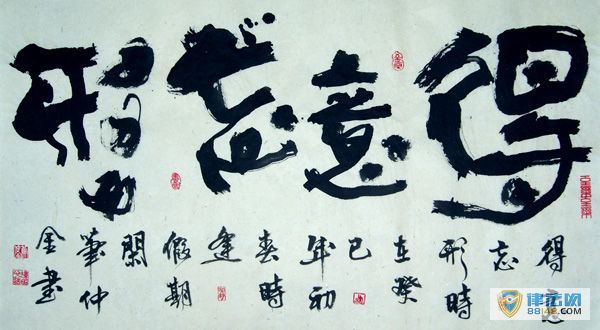 得意忘形
得意
忘
形時
在癸
巳
年初
春時
逢
假期
閑
筆仲
金書
88148.com